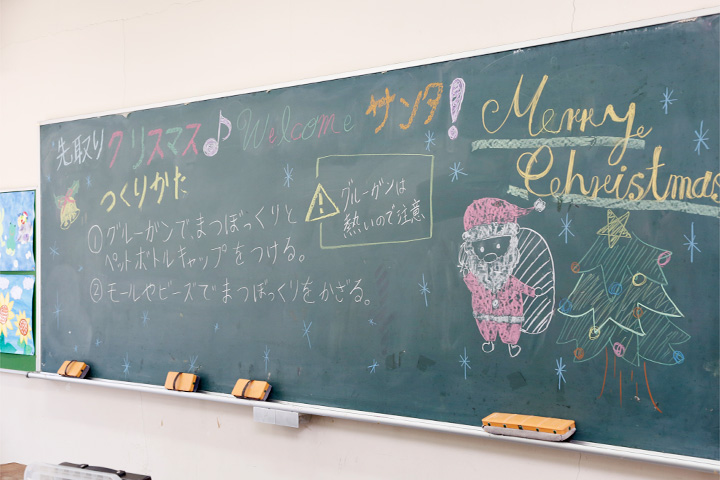 先取りクリスマス♪ Welcome サンタ!
つくりかた
①グルーガンで、まつぼっくりと
ペットボトルキャップをつける。
②モールやビーズでまつぼっくりをかざる。
グルーガンは
熱いので注意
Merry
Christmas